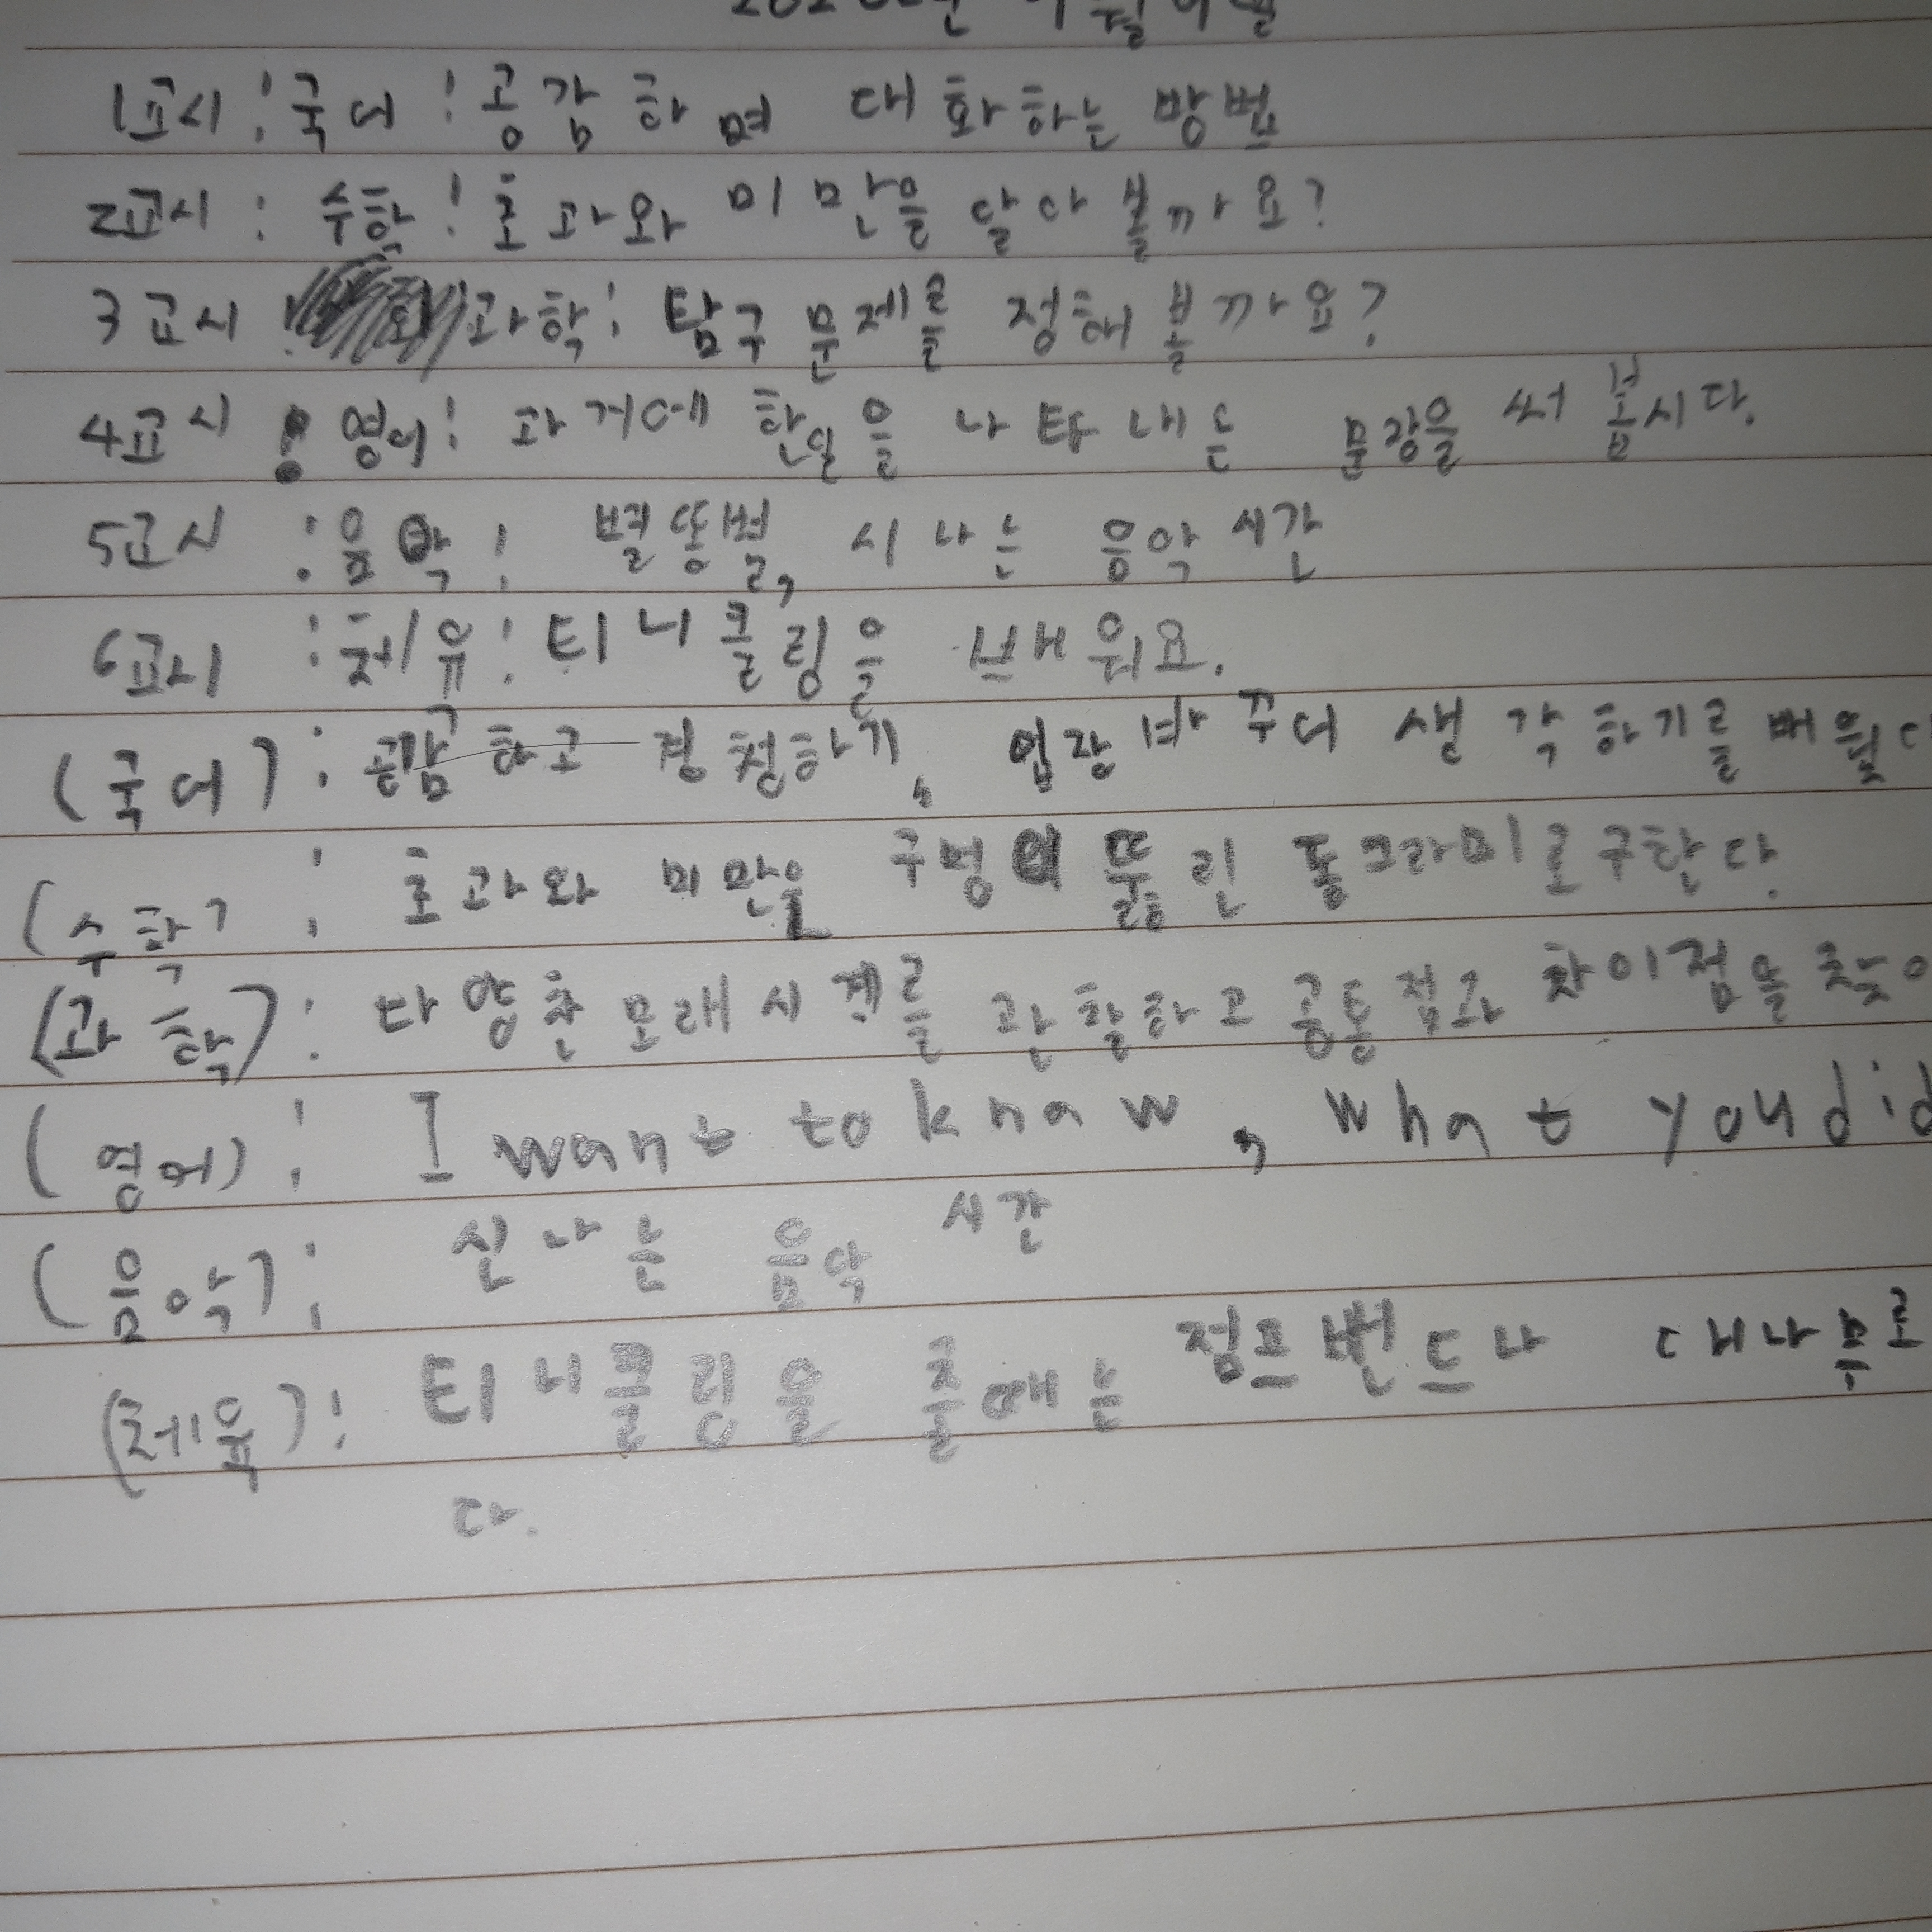 1교시 : 국어 : 공감하며 대화하는 방법
2교시 : 수학 : 초과와 미만을 알아 볼까요?
3교시 : 과학 : 탐구 문제를 정해 볼까요?
4교시 : 영어 : 과거에 한일을 나타내는 문장을 써 봅시다.
5교시 : 음악 : 별똥별, 시나는 음악 시간
6교시 : 체유 : 티니클링을 배워요.
(국어) : 공감하고 경청하기, 입장 바꾸어 생각하기를
(수학) : 초과와 미만을 구멍이 뚫린 동그라미로 구한다.
(과학) : 다양한 모래시계를 관찰하고 공통점과 차이점을
(영어) : I want to know, what you did
(음악) : 신나는 음악 시간
(체육) : 티니클링을 출때는 점프밴드나 대나무로
다.